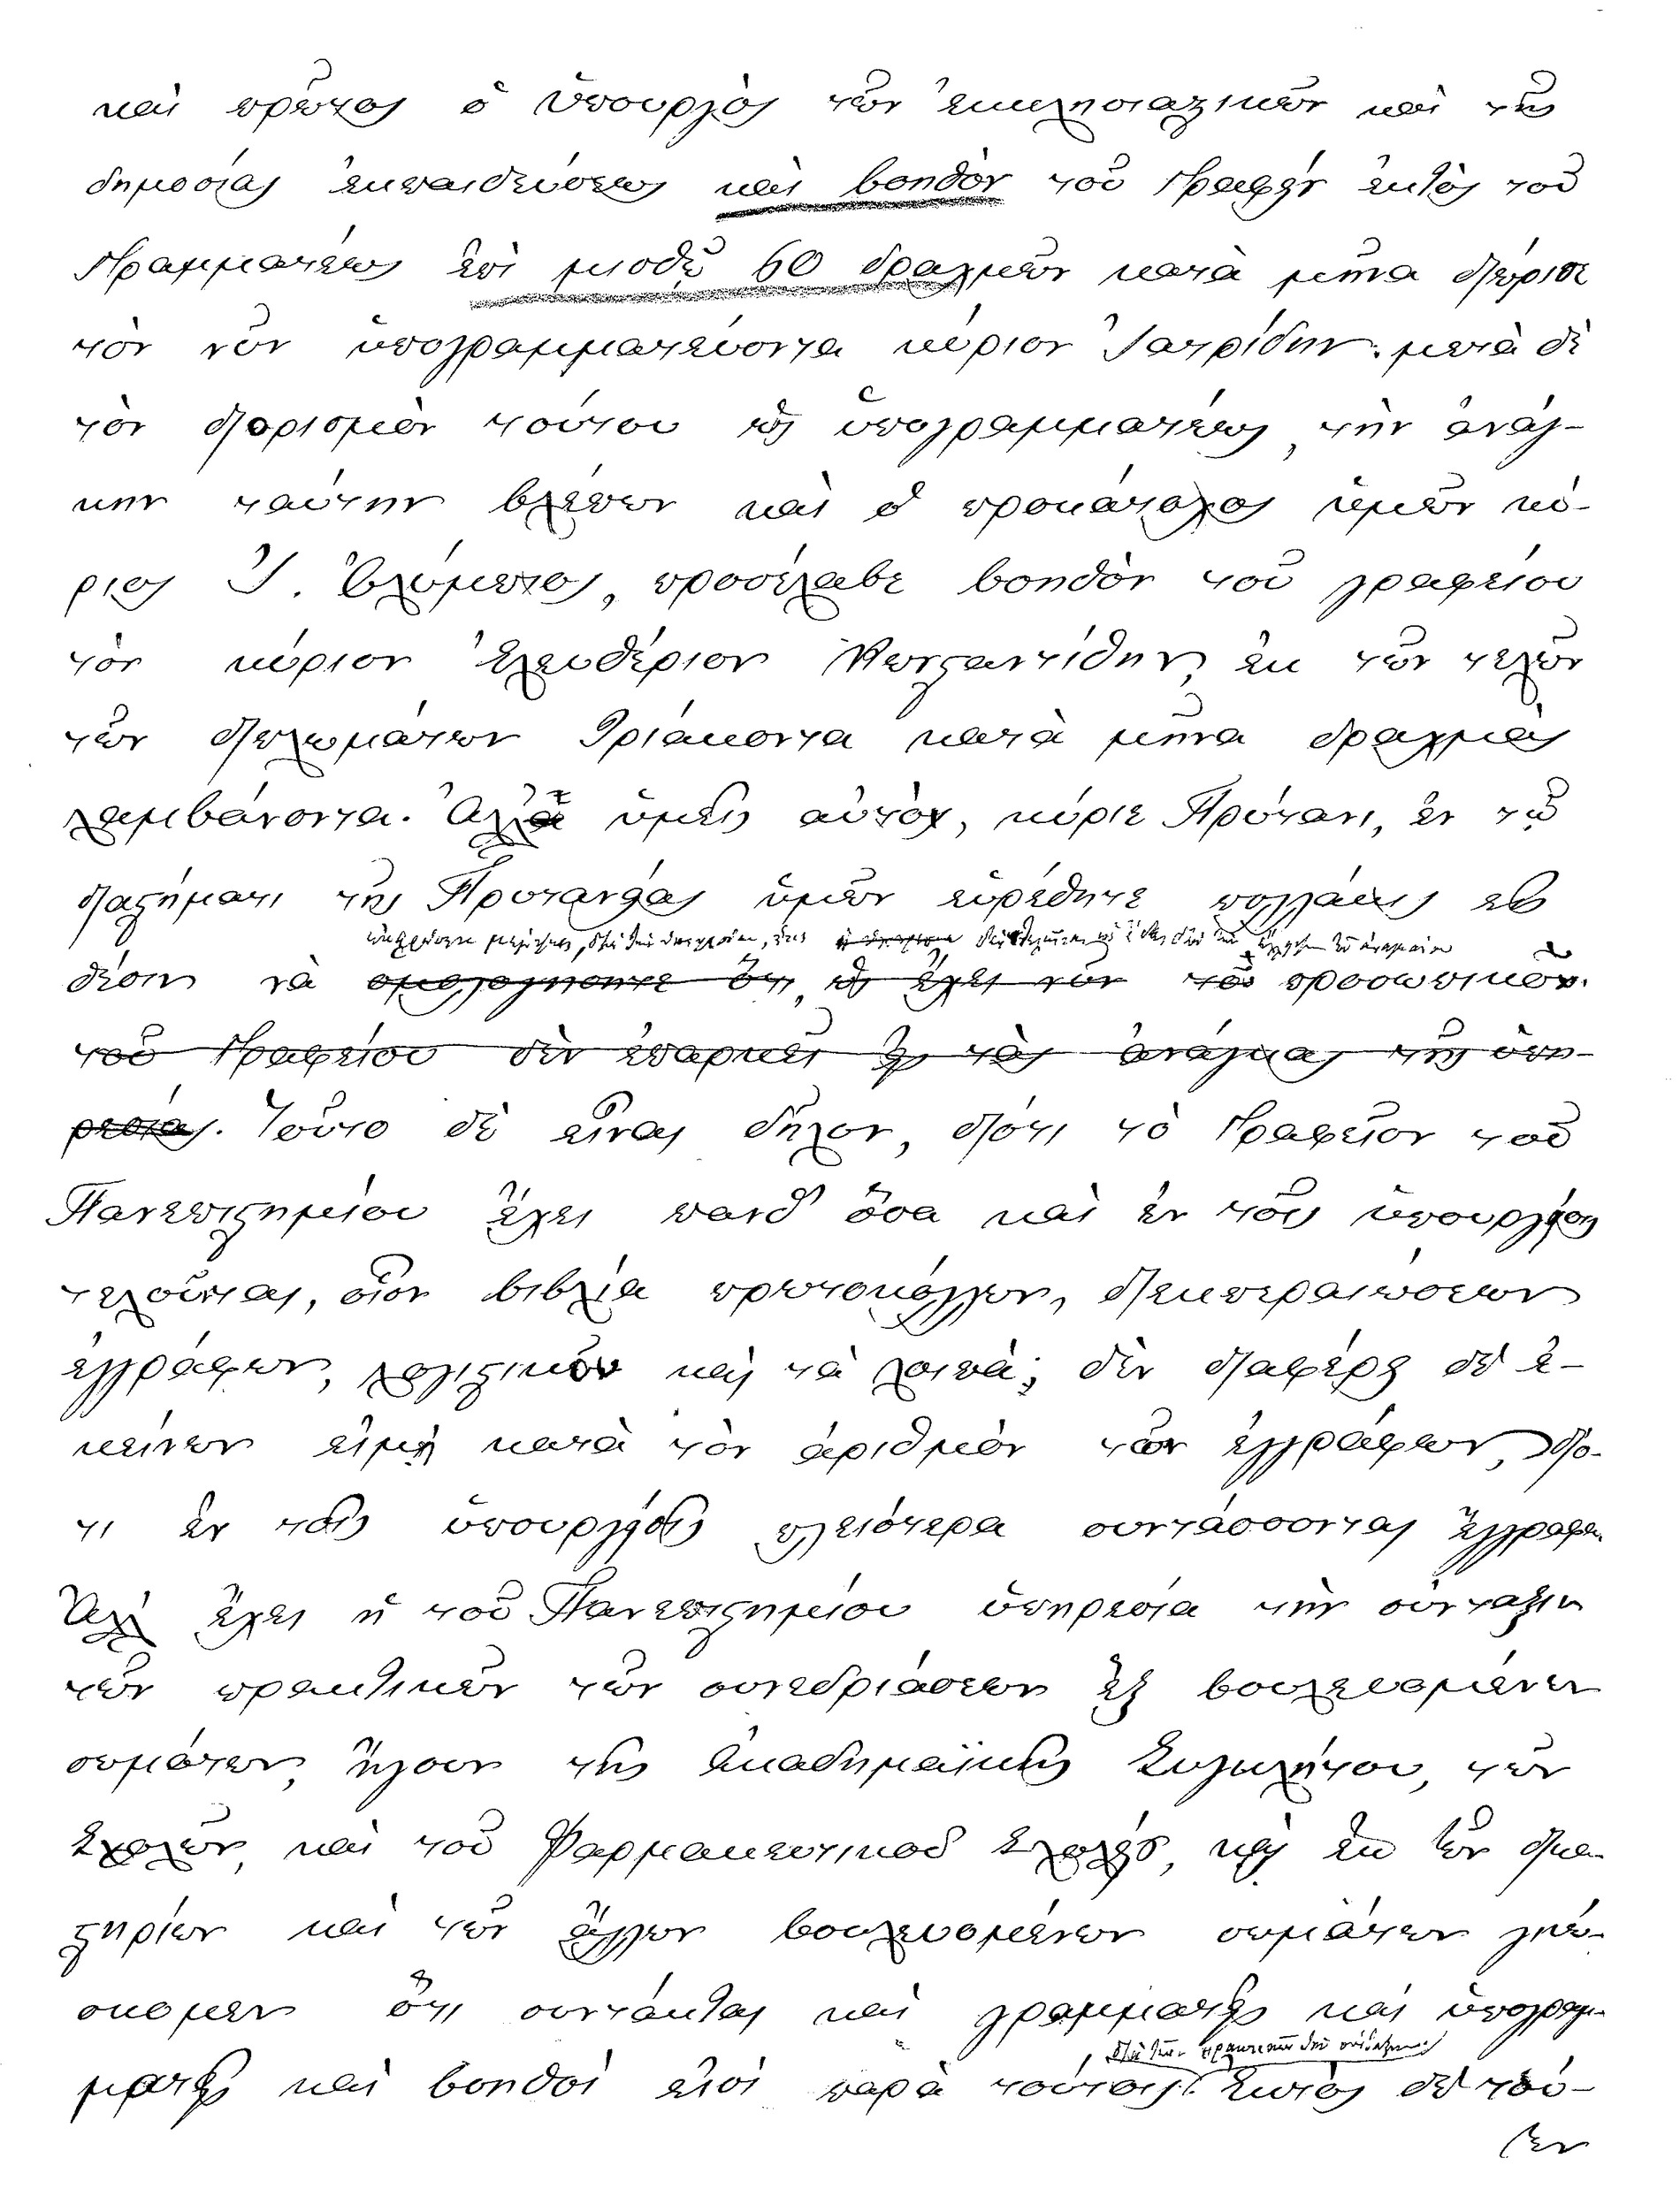 καὶ πρῶτος ὁ ὑπουργὸς τῶν ἐκκλησιαστικῶν καὶ τῆς
δημοσίας ἐκπαιδεύσεως καὶ βοηθὸν τοῦ Γραφείου ἐκτὸς τοῦ
Γραμματέως ἐπὶ μισθῷ 60 δραχμῶν κατὰ μῆνα διώρισε
τὸν νῦν ὑπογραμματεύοντα κύριον Ἰατρίδην· μετὰ δὲ
τὸν διορισμὸν τούτου ὡς ὑπογραμματέως, τὴν ἀνάγ-
κην ταύτην βλέπων καὶ ὁ προκάτοχος ὑμῶν κύ-
ριος Ἰ. Ὀλύμπιος, προσέλαβε βοηθὸν τοῦ γραφείου
τὸν κύριον Ἐλευθέριον Κωνσταντίδην, ἐκ τῶν τελῶν
τῶν διπλωμάτων τριάκοντα κατὰ μῆνα δραχμὰς
λαμβάνοντα. Ἀλλὰ ὑμεῖς αὐτὸς, κύριε Πρύτανι, ἐν τῷ
διαστήματι τῆς Πρυτανείας ὑμῶν εὑρέθητε πολλάκις εἰς
θέσιν νὰ ὁμολογήσητε ὅτι, ὡς ἔχει νῦν τὸ προσωπικὸν
τοῦ Γραφείου δὲν ἐπαρκεῖ εἰς τὰς ἀνάγκας τῆς ὑπη-
ρεσίας. Τοῦτο δὲ εἶναι δῆλον, διότι τὸ Γραφεῖον τοῦ
Πανεπιστημίου ἔχει πάνθ' ὅσα καὶ ἐν τοῖς ὑπουργείοις
τελοῦνται, οἷον βιβλία πρωτοκόλλων, διεκπεραιώσεων
ἐγγράφων, λογιστικῶν καὶ τὰ λοιπὰ; δὲν διαφέρει δ' ἐ-
κείνων εἰμὴ κατὰ τὸν ἀριθμὸν τῶν ἐγγράφων, διό-
τι ἐν τοῖς ὑπουργείοις πλειότερα συντάσσονται ἔγγραφα.
Ἀλλ' ἔχει ἡ τοῦ Πανεπιστημίου ὑπηρεσία τὴν σύνταξιν
τῶν πρακτικῶν τῶν συνεδριάσεων ἓξ βουλευομένων
σωμάτων, ἤγουν τῆς Ἀκαδημαϊκῆς Συγκλήτου, τῶν
Σχολῶν, καὶ τοῦ Φαρμακευτικοῦ Σχολείου, καὶ ἐκ τῶν δικα-
στηρίων καὶ τῶν ἄλλων βουλευομένων σωμάτων γινώ-
σκομεν ὅτι συντάκται καὶ γραμματεῖς καὶ ὑπογραμ-
ματεῖς καὶ βοηθοὶ εἰσὶ παρὰ τούτοις διὰ τῶν πρακτικῶν τὴν σύνταξιν. Ἐκτὸς δὲ τού-
των